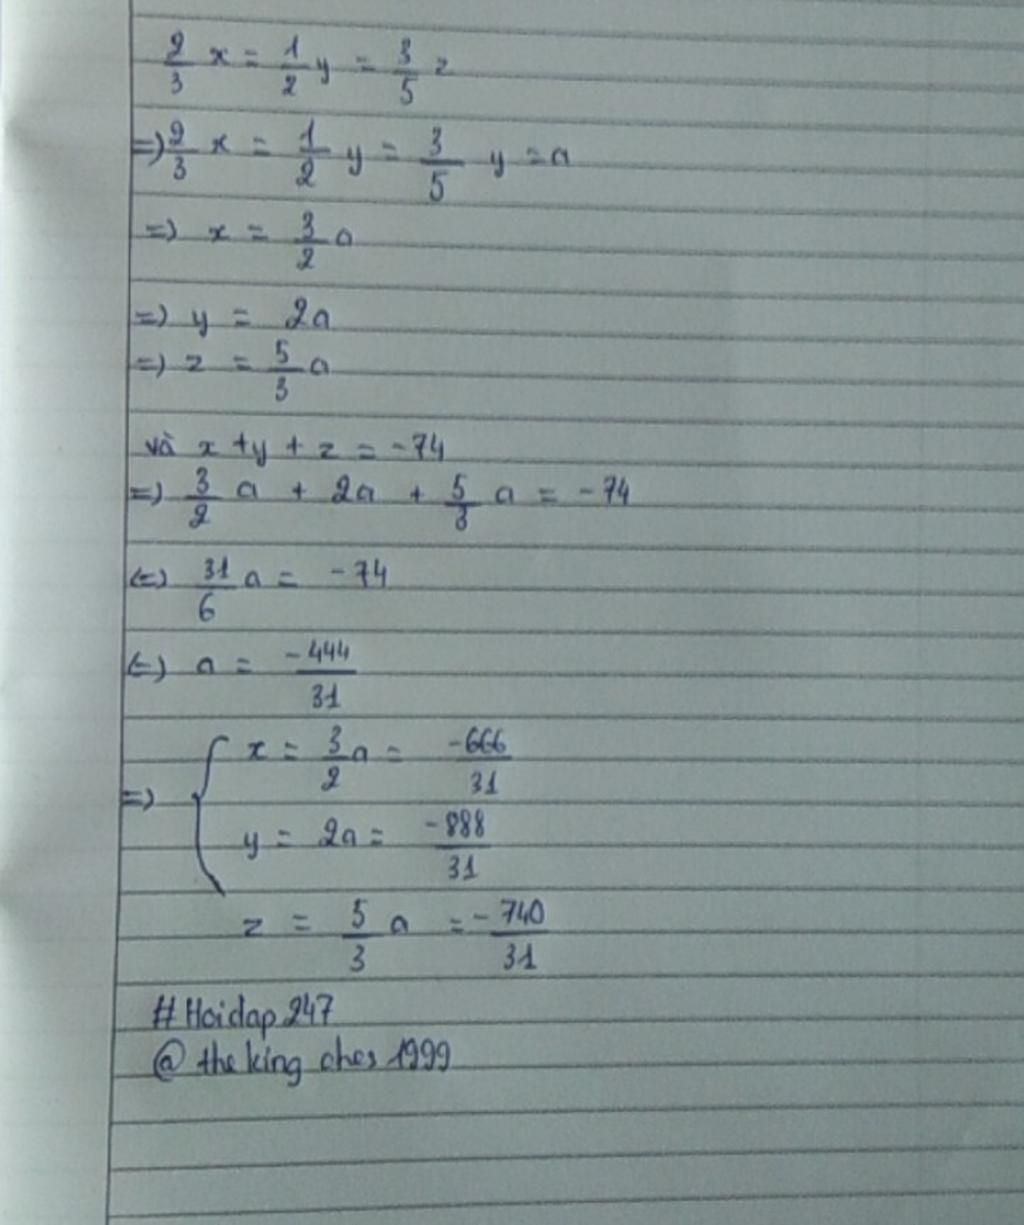 2/3 x = 1/2 y = 3/5 z
=) 2/3 x = 1/2 y = 3/5 y = a
=) x = 3/2 a
=) y = 2a
=) z = 5/3 a
và x + y + z = -74
=) 3/2 a + 2a + 5/3 a = -74
(=) 31/6 a = -74
(=) a = -444/31
=) { x = 3/2 a = -666/31
y = 2a = -888/31
z = 5/3 a = -740/31
# Hoidap 247
@ the king ches 1999